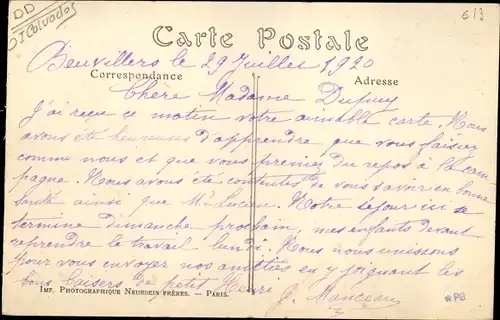 DD
DI Calvados
613
Carte Postale
Beuvillers le 29 Juillet 1920
Correspondance
Adresse
Chère Madame Dupuy
J'ai reçu ce matin votre aimable carte. Nous
avons été heureuses d'apprendre que vous faisiez
comme nous et que vous preniez du repos à la cam
pagne. Nous avons été contentes de vous savoir en bonne
santé ainsi que Mr Lucien. Notre séjour ici se
termine dimanche prochain, mes enfants devant
reprendre le travail lundi. Nous nous unissons
pour vous envoyer nos amitiés en y joignant les
bons baisers de petit Henri
J. Manceau
Imp. Photographique Neurdein Frères. — Paris.
*PB